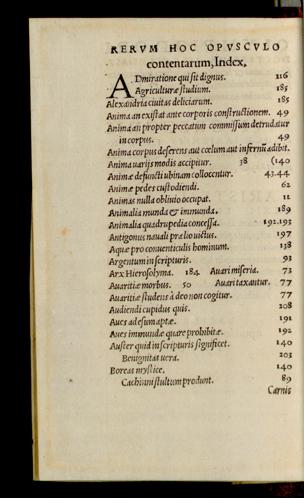 RERVM HOC OPVSCVLO
contentarum, Index.
ADmiratione qui sit dignus. 116
Agriculturæ studium. 185
Alexandria ciuitas deliciarum. 185
Anima an existat ante corporis constructionem. 49
Anima an propter peccatum commissum detrudatur
in corpus. 49
Anima corpus deserens aut cœlum aut infernũ adibit.
Anima uarijs modis accipitur. 38 (140
Animæ defuncti ubinam collocentur. 43.44
Animæ pedes custodiendi. 62
Animas nulla obliuio occupat. 12
Animalia munda & immunda. 189
Animalia quadrupedia concessa. 192.193
Antigonus nauali prælio uictus. 197
Aquæ pro conuenticulis hominum. 138
Argentum in scripturis. 93
Arx Hierosolyma. 184 Auari miseria. 73
Auaritiæ morbus. 50 Auari taxantur. 77
Auaritiæ studens à deo non cogitur. 77
Audiendi cupidus quis. 208
Aues ad esum aptæ. 191
Aues immundæ quare prohibitæ. 192
Auster quid in scripturis significet. 140
Benignitas uera. 203
Boreas mystice. 140
Cachinni stultum produnt. 89
Carnis